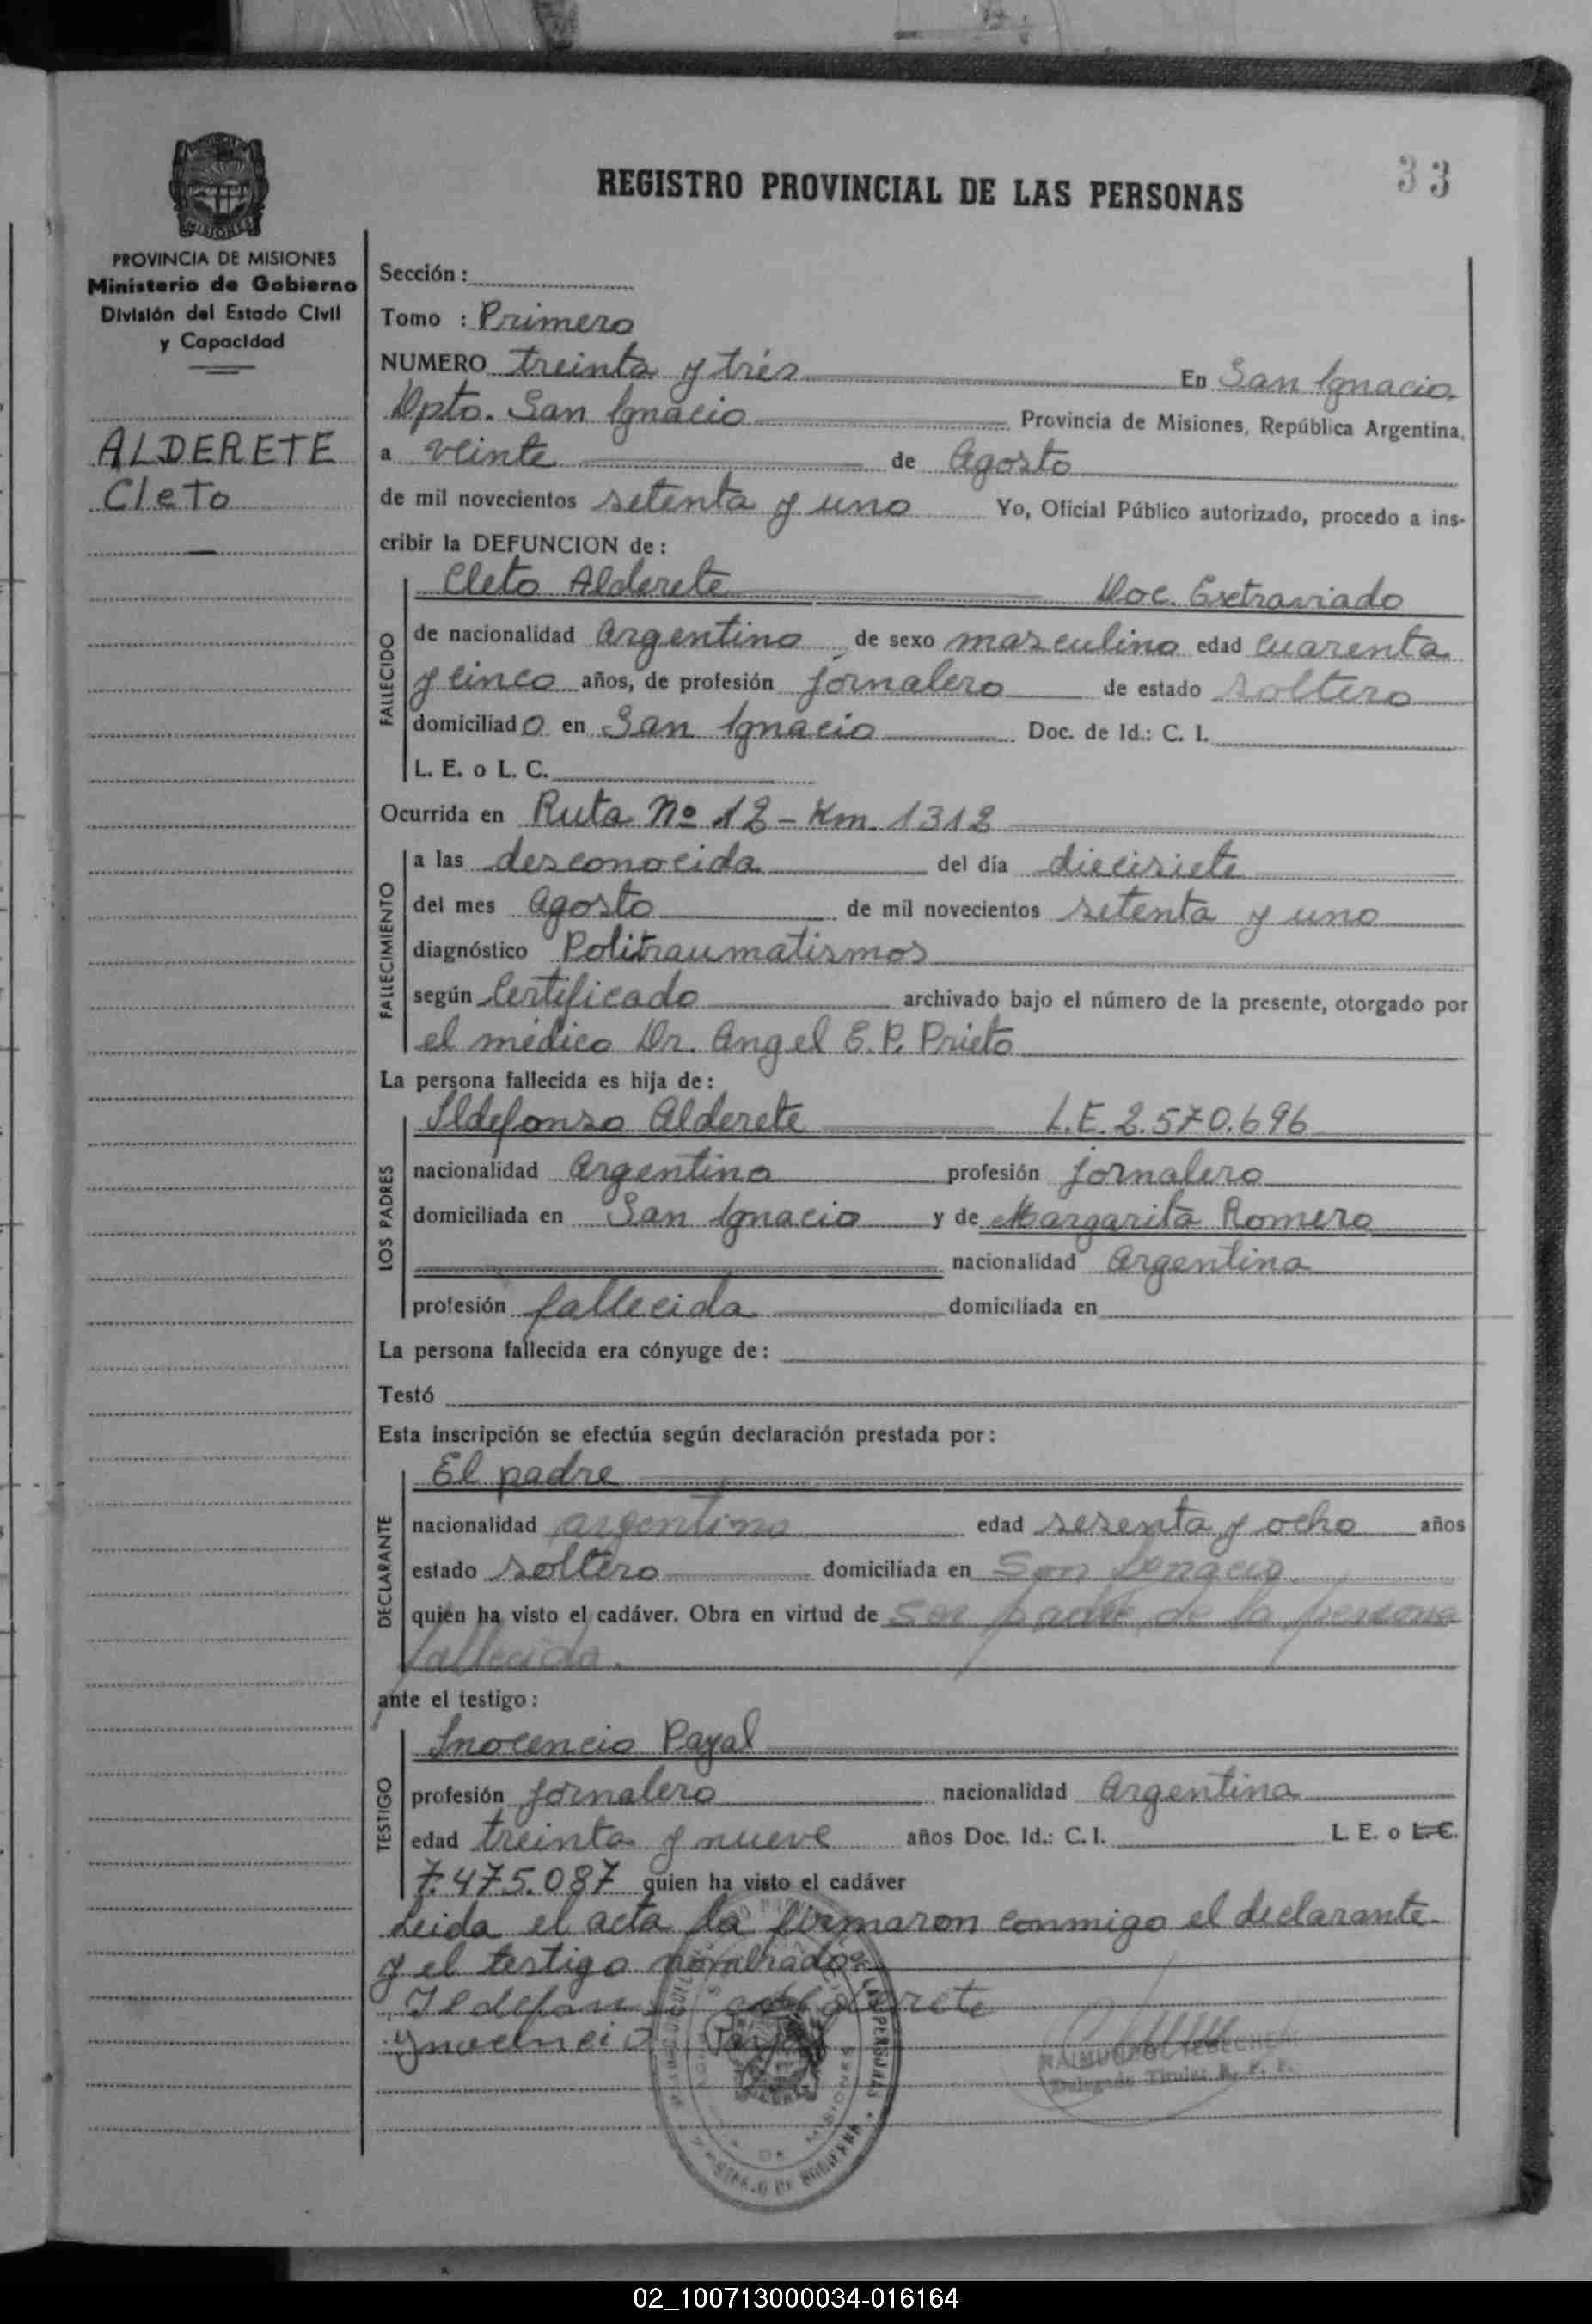 33
REGISTRO PROVINCIAL DE LAS PERSONAS
MISIONES
PROVINCIA DE MISIONES
Ministerio de Gobierno
División del Estado Civil
y Capacidad
ALDERETE
Cleto
Sección :
Tomo : Primero
NUMERO treinta y trés En San Ignacio.
Dpto. San Ignacio Provincia de Misiones, República Argentina,
a veinte de Agosto
de mil novecientos setenta y uno Yo, Oficial Público autorizado, procedo a ins-
cribir la DEFUNCION de :
FALLECIDO
Cleto Alderete Doc. Extraviado
de nacionalidad Argentino de sexo masculino edad cuarenta
y cinco años, de profesión jornalero de estado soltero
domiciliado en San Ignacio Doc. de Id.: C. I.
L. E. o L. C.
Ocurrida en Ruta Nº 12 - Km. 1312
FALLECIMIENTO
a las desconocida del día diecisiete
del mes Agosto de mil novecientos setenta y uno
diagnóstico Politraumatismos
según Certificado archivado bajo el número de la presente, otorgado por
el médico Dr. Angel E. P. Prieto
La persona fallecida es hija de :
LOS PADRES
Ildefonso Alderete L.E. 2.570.696
nacionalidad Argentino profesión jornalero
domiciliada en San Ignacio y de Margarita Romero
nacionalidad Argentina
profesión fallecida domiciliada en
La persona fallecida era cónyuge de :
Testó
Esta inscripción se efectúa según declaración prestada por :
DECLARANTE
El padre
nacionalidad argentino edad sesenta y ocho años
estado soltero domiciliada en San Ignacio
quien ha visto el cadáver. Obra en virtud de ser padre de la persona
fallecida.
ante el testigo :
TESTIGO
Inocencio Payal
profesión jornalero nacionalidad Argentina
edad treinta y nueve años Doc. Id.: C. I. L. E. o L. C.
7.475.087 quien ha visto el cadáver
Leida el acta la firmaron conmigo el declarante
y el testigo nombrado.
Ildefonso Alderete
Ynocencio Payal
Delegado Titular R. P. P.
02_100713000034-016164